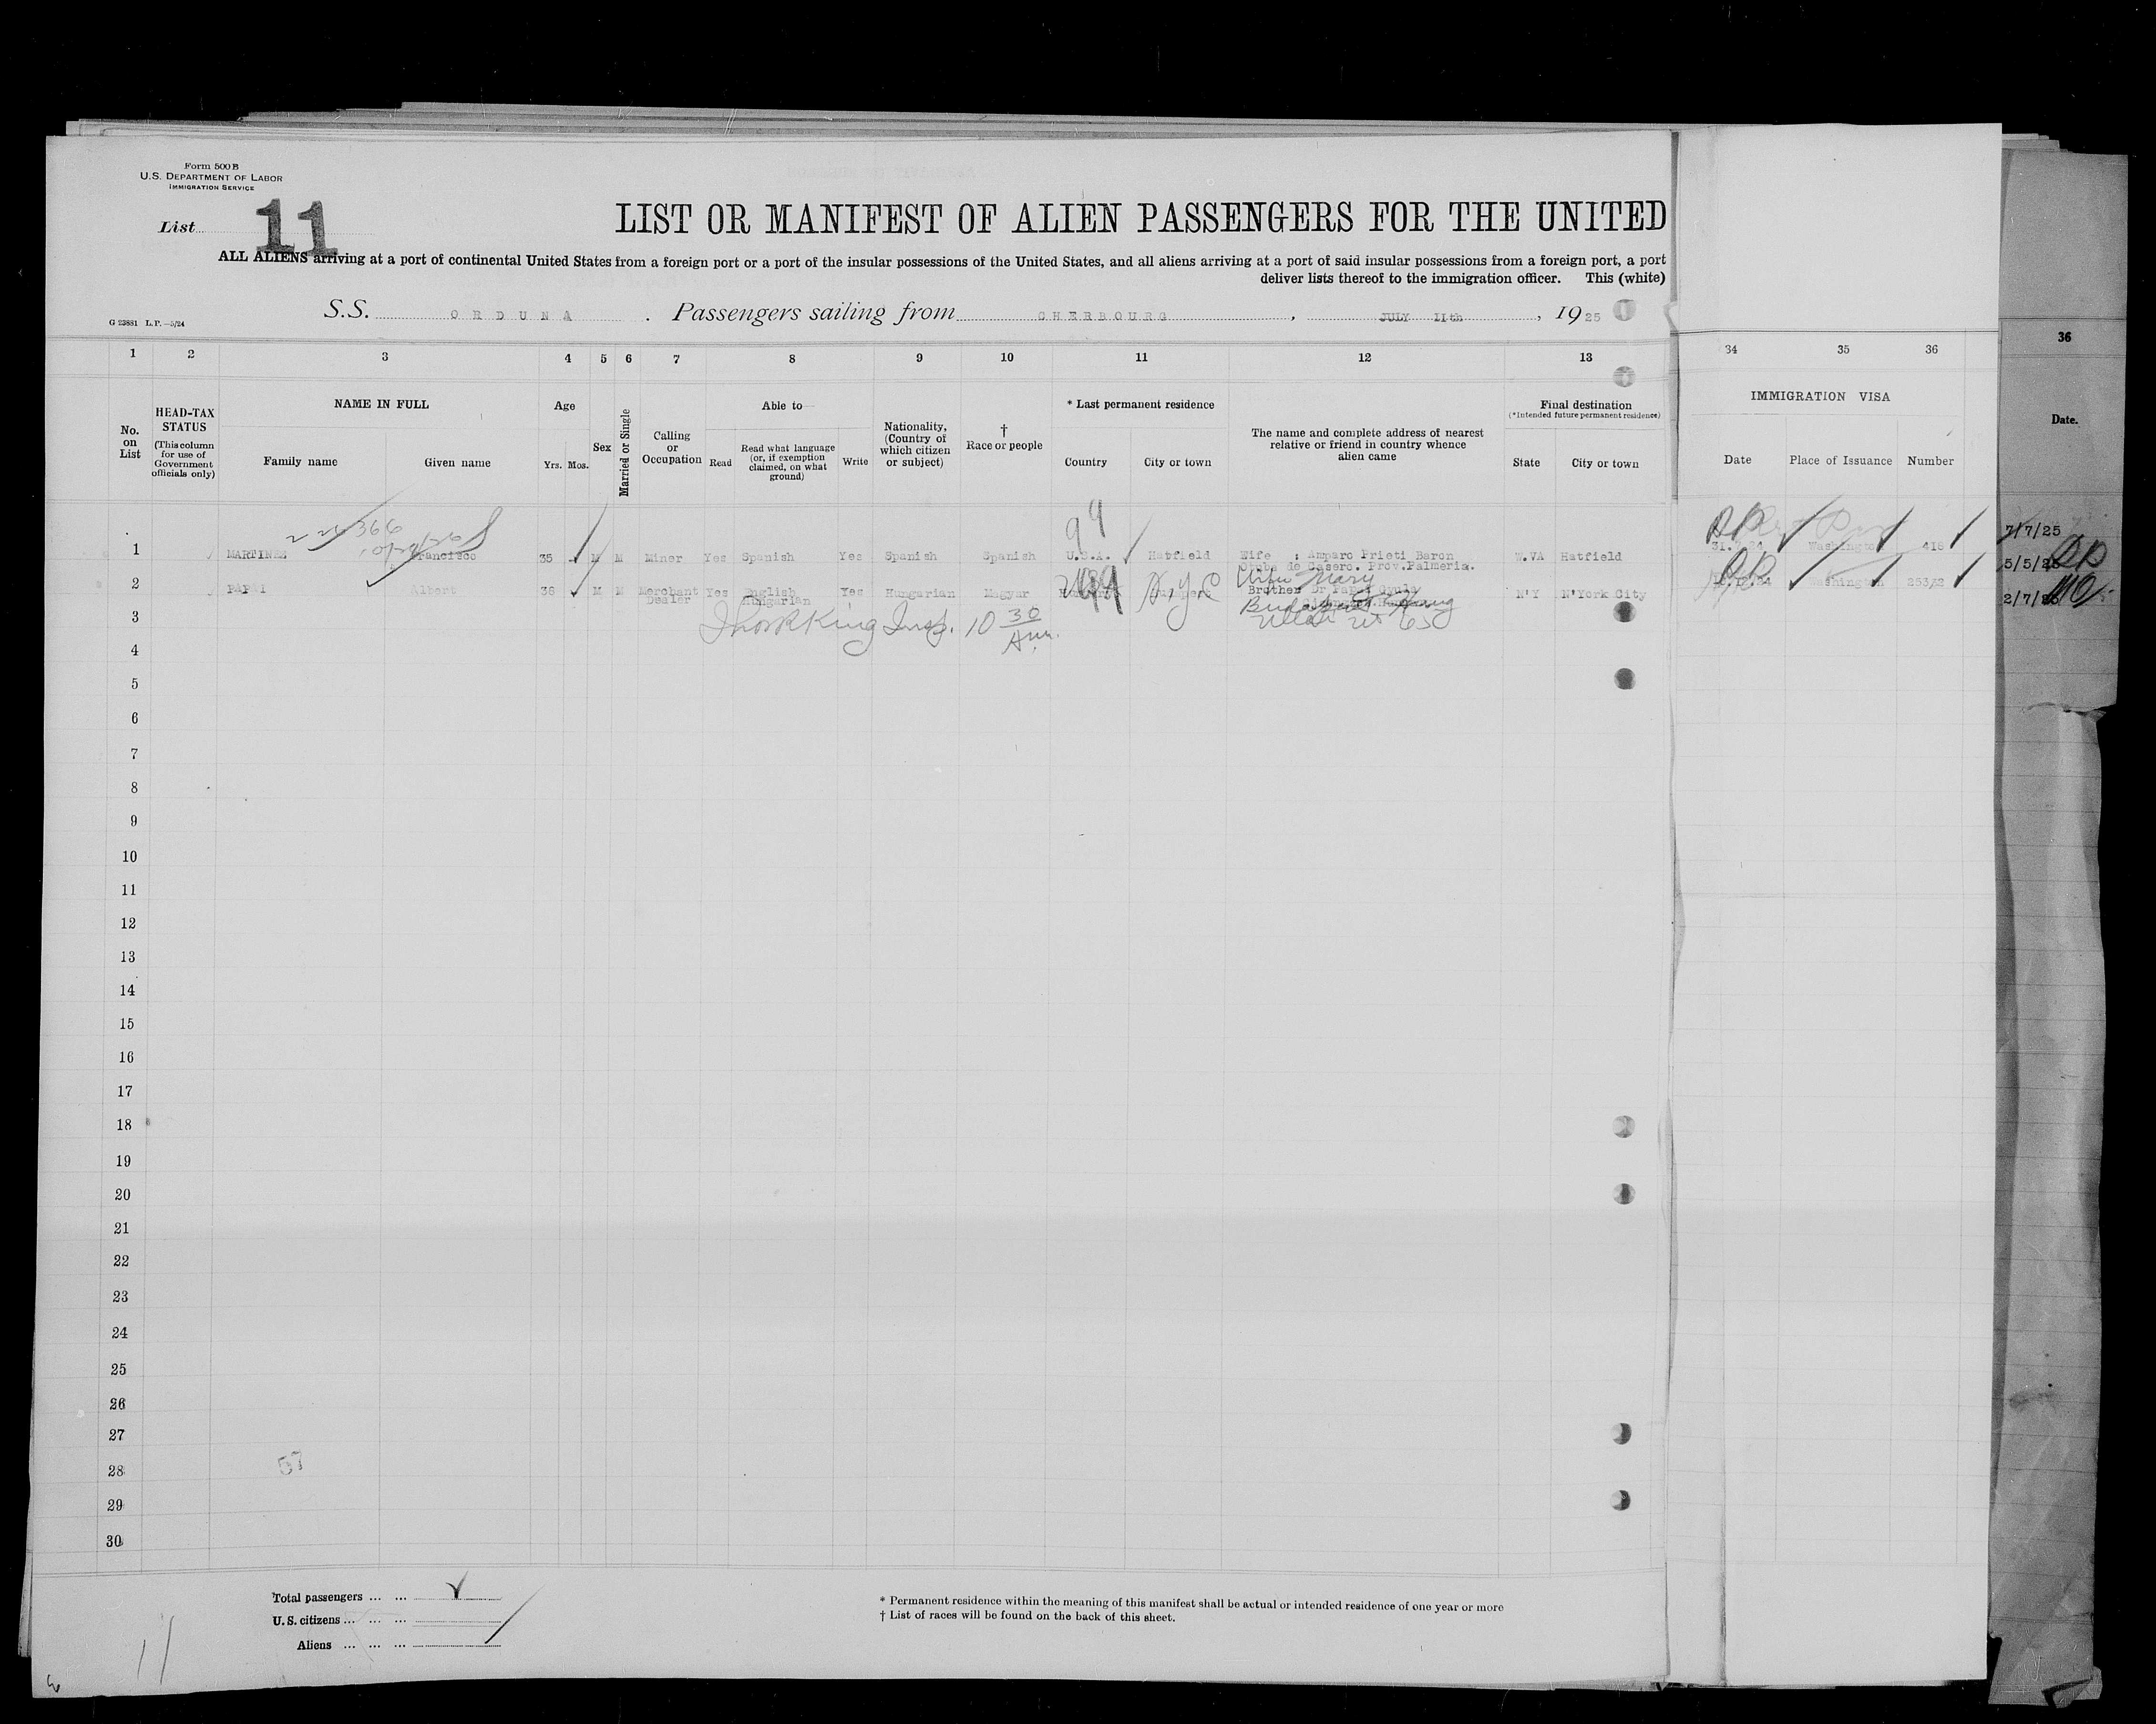 Form 500 B
U.S. DEPARTMENT OF LABOR
IMMIGRATION SERVICE
List 11
LIST OR MANIFEST OF ALIEN PASSENGERS FOR THE UNITED
ALL ALIENS arriving at a port of continental United States from a foreign port or a port of the insular possessions of the United States, and all aliens arriving at a port of said insular possessions from a foreign port, a port
deliver lists thereof to the immigration officer. This (white)
S.S. ORDUNA . Passengers sailing from CHERBOURG , JULY 11th , 1925
G 23881 L.P.—5/24
1 2 3 4 5 6 7 8 9 10 11 12 13 34 35 36 36
No. on List
HEAD-TAX STATUS
(This column for use of Government officials only)
NAME IN FULL
Family name Given name
Age
Yrs. Mos.
Sex
Married or Single
Calling or Occupation
Able to
Read
Read what language (or, if exemption claimed, on what ground)
Write
Nationality, (Country of which citizen or subject)
† Race or people
* Last permanent residence
Country City or town
The name and complete address of nearest relative or friend in country whence alien came
Final destination
(*Intended future permanent residence)
State City or town
IMMIGRATION VISA
Date Place of Issuance Number
Date.
366
99
1 MARTINEZ Francisco 35 M M Miner Yes Spanish Yes Spanish Spanish U.S.A. Hatfield Wife : Amparo Prieti Baron W.VA Hatfield Washington 416
7/7/25
Prov.Palmeria.
5/5/25
Mary
2 PAPAI Albert 36 M M Merchant Yes English Yes Hungarian Magyar 99 N.Y.C Brother Dr N'Y N'York City Washington
Dealer Hungarian
2/7/25
3
King Insp. 10 30 Am.
4
5
6
7
8
9
10
11
12
13
14
15
16
17
18
19
20
21
22
23
24
25
26
27
28
57
29
30
Total passengers ... ...
U.S. citizens ... ... ...
Aliens ... ... ...
* Permanent residence within the meaning of this manifest shall be actual or intended residence of one year or more
† List of races will be found on the back of this sheet.
11